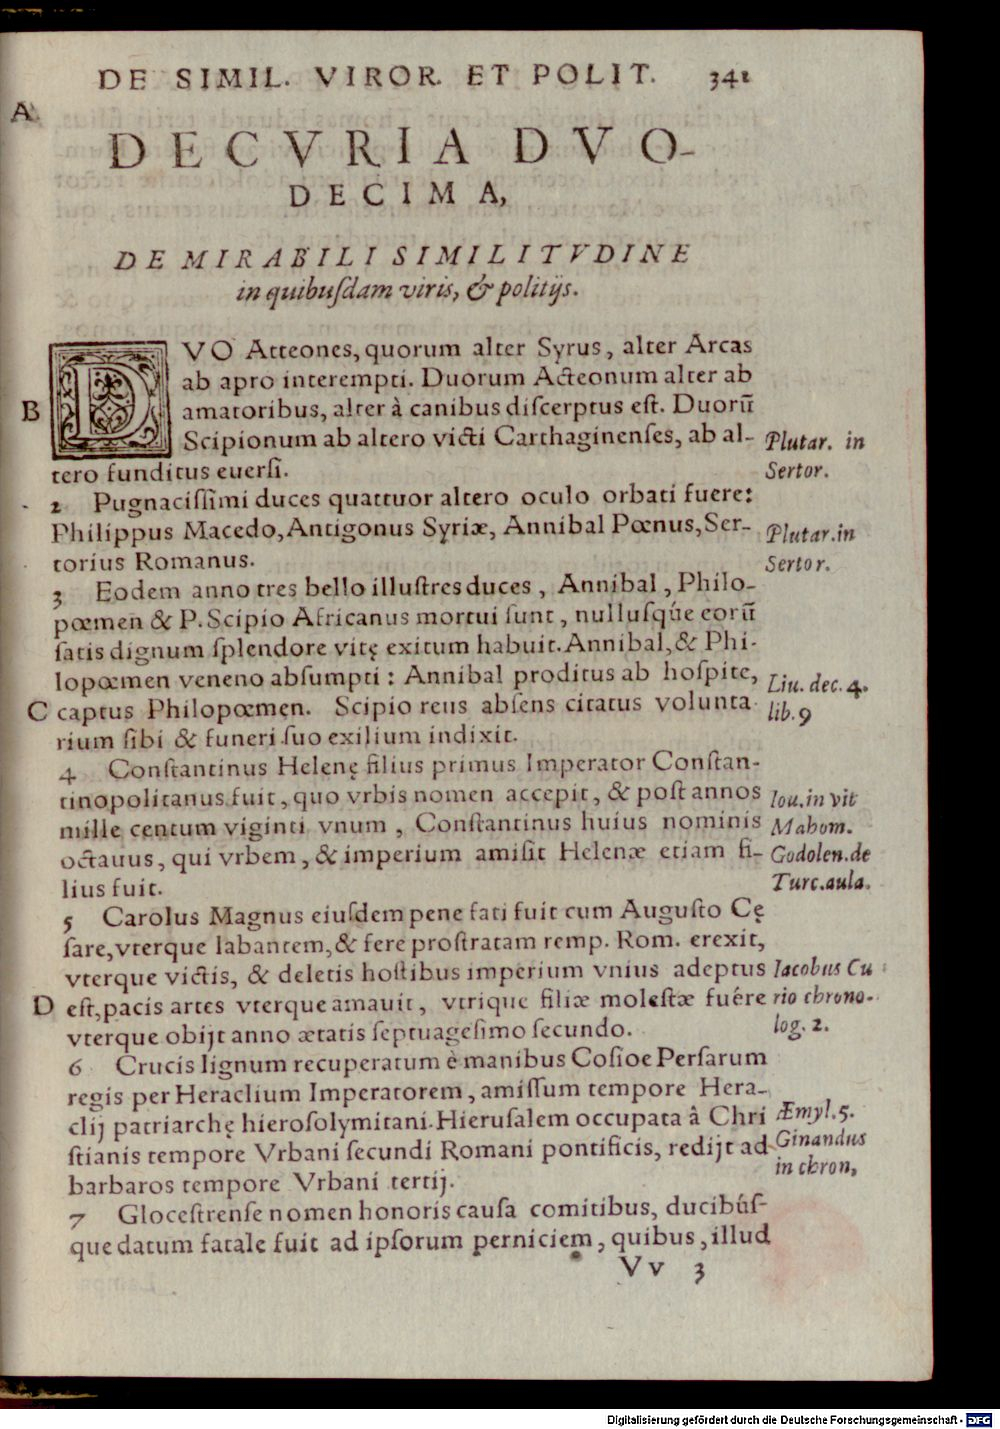 DE SIMIL. VIROR. ET POLIT. 341
A
DECVRIA DVO-
DECIMA,
DE MIRABILI SIMILITVDINE
in quibuſdam viris, & politijs.
DVO Atteones, quorum alter Syrus, alter Arcas
ab apro interempti. Duorum Acteonum alter ab
B
amatoribus, alter à canibus diſcerptus eſt. Duorū
Scipionum ab altero victi Carthaginenſes, ab al-
Plutar. in
tero funditus euerſi.
Sertor.
2 Pugnaciſſimi duces quattuor altero oculo orbati fuere:
Philippus Macedo, Antigonus Syriæ, Annibal Pœnus, Ser-
Plutar. in
torius Romanus.
Sertor.
3 Eodem anno tres bello illuſtres duces, Annibal, Philo-
pœmen & P. Scipio Africanus mortui ſunt, nulluſqúe eorū
ſatis dignum ſplendore vitę exitum habuit. Annibal, & Phi-
lopœmen veneno abſumpti: Annibal proditus ab hoſpite,
Liu. dec. 4.
C
captus Philopœmen. Scipio reus abſens citatus volunta
lib. 9
rium ſibi & funeri ſuo exilium indixit.
4 Conſtantinus Helenę filius primus Imperator Conſtan-
tinopolitanus fuit, quo vrbis nomen accepit, & poſt annos
Iou. in vit
mille centum viginti vnum, Conſtantinus huius nominis
Mahom.
octauus, qui vrbem, & imperium amiſit Helenæ etiam fi-
Godolen. de
lius fuit.
Turc. aula.
5 Carolus Magnus eiuſdem pene fati fuit cum Auguſto Cę
ſare, vterque labantem, & fere proſtratam remp. Rom. erexit,
vterque victis, & deletis hoſtibus imperium vnius adeptus
Iacobus Cu
D
eſt, pacis artes vterque amauit, vtrique filiæ moleſtæ fuére
rio chrono-
vterque obijt anno ætatis ſeptuageſimo ſecundo.
log. 2.
6 Crucis lignum recuperatum è manibus Coſioe Perſarum
regis per Heraclium Imperatorem, amiſſum tempore Hera-
clij patriarchę hieroſolymitani. Hieruſalem occupata â Chri
Æmyl. 5.
ſtianis tempore Vrbani ſecundi Romani pontificis, redijt ad
Ginandus
barbaros tempore Vrbani tertij.
in chron,
7 Gloceſtrenſe nomen honoris cauſa comitibus, ducibúſ-
que datum fatale fuit ad ipſorum perniciem, quibus, illud
Vv 3
Digitalisierung gefördert durch die Deutsche Forschungsgemeinschaft - DFG